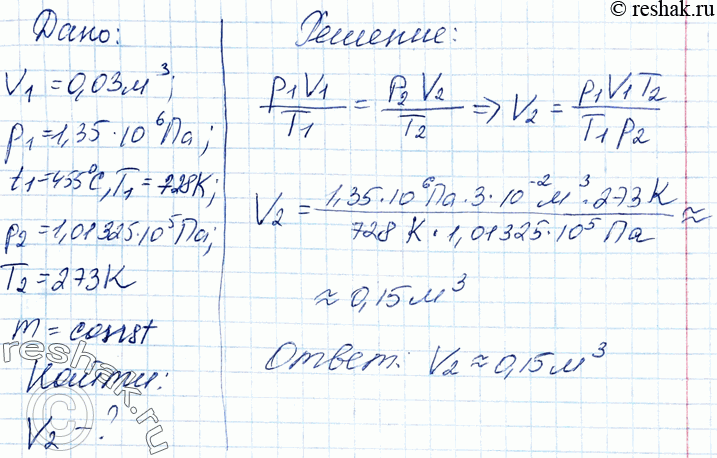 © reshak.ru
Дано:
V₁ = 0,03 м³;
p₁ = 1,35 · 10⁶ Па;
t₁ = 455°C, T₁ = 728 К;
p₂ = 1,01325 · 10⁵ Па;
T₂ = 273 К
m = const
Найти:
V₂ – ?
Решение:
p₁V₁/T₁ = p₂V₂/T₂ => V₂ = p₁V₁T₂/T₁p₂
V₂ = 1,35 · 10⁶ Па · 3 · 10⁻² м³ · 273 К / 728 К · 1,01325 · 10⁵ Па ≈
≈ 0,15 м³
Ответ: V₂ ≈ 0,15 м³
© reshak.ru